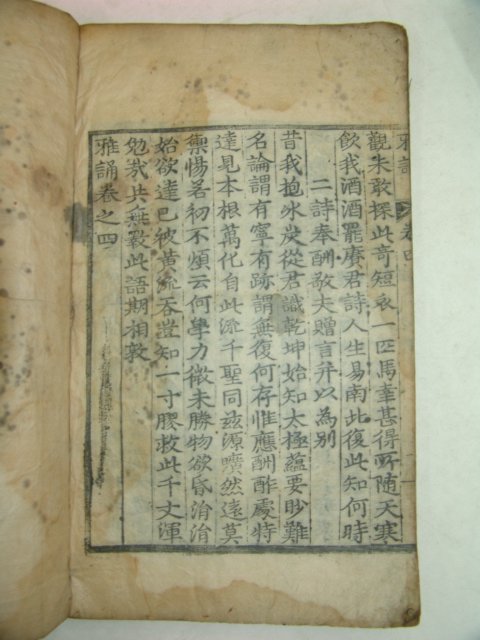 雅誦 卷四
觀朱敢探此奇短衣一匹馬幸甚得所隨天寒
飲我酒酒罷賡君詩人生易南北復此知何時
二詩奉酬敬夫贈言并以為別
昔我抱氷炭從君識乾坤始知太極蘊要眇難
名論謂有寧有跡謂無復何存惟應酬酢處特
達見本根萬化自此流千聖同玆源曠然遠莫
禦惕若初不煩云何學力微未勝物欲昏涓涓
始欲達已被黃流吞豈知一寸膠救此千丈渾
勉哉共無斁此語期相敦
雅誦卷之四